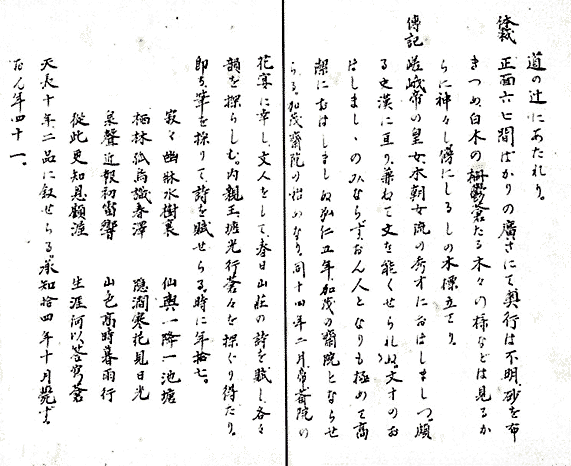 道の辻にあたれり。
体裁 正面六七間ばかりの廣さにて奥行は不明、砂を布
きつめ白木の柵鬱蒼たる木々の様などは見るか
らに神々し傍にしるしの木標立てり
傳記 嵯峨帝の皇女、本朝女流の秀才におはしましつ、頗
る史漢に亘り、兼ねて文を能くせられぬ、文才のお
はしましゝのみならず、おん人となりも極めて高
潔におはしましぬ、弘仁五年、加茂の齋院とならせ
らる、加茂齋院の始めなり、同十四年二月、帝齋院の
花宴に幸し、文人をして、春日山荘の詩を賦し各々
韻を探らしむ。内親王塘光行蒼々を探ぐり得たり。
即ち筆を採りて、詩を賦せらる、時に年拾七。
寂々幽莊水樹裏 仙輿一降一池塘
栖林孤鳥識春澤 隠澗寒花見日光
泉聲近報初雷響 山色高晴暮雨行
從此更知恩顧渥 生涯何以答穹蒼
天長十年二品に叙せらる、承和拾四年十月薨ず。
おん年四十一。